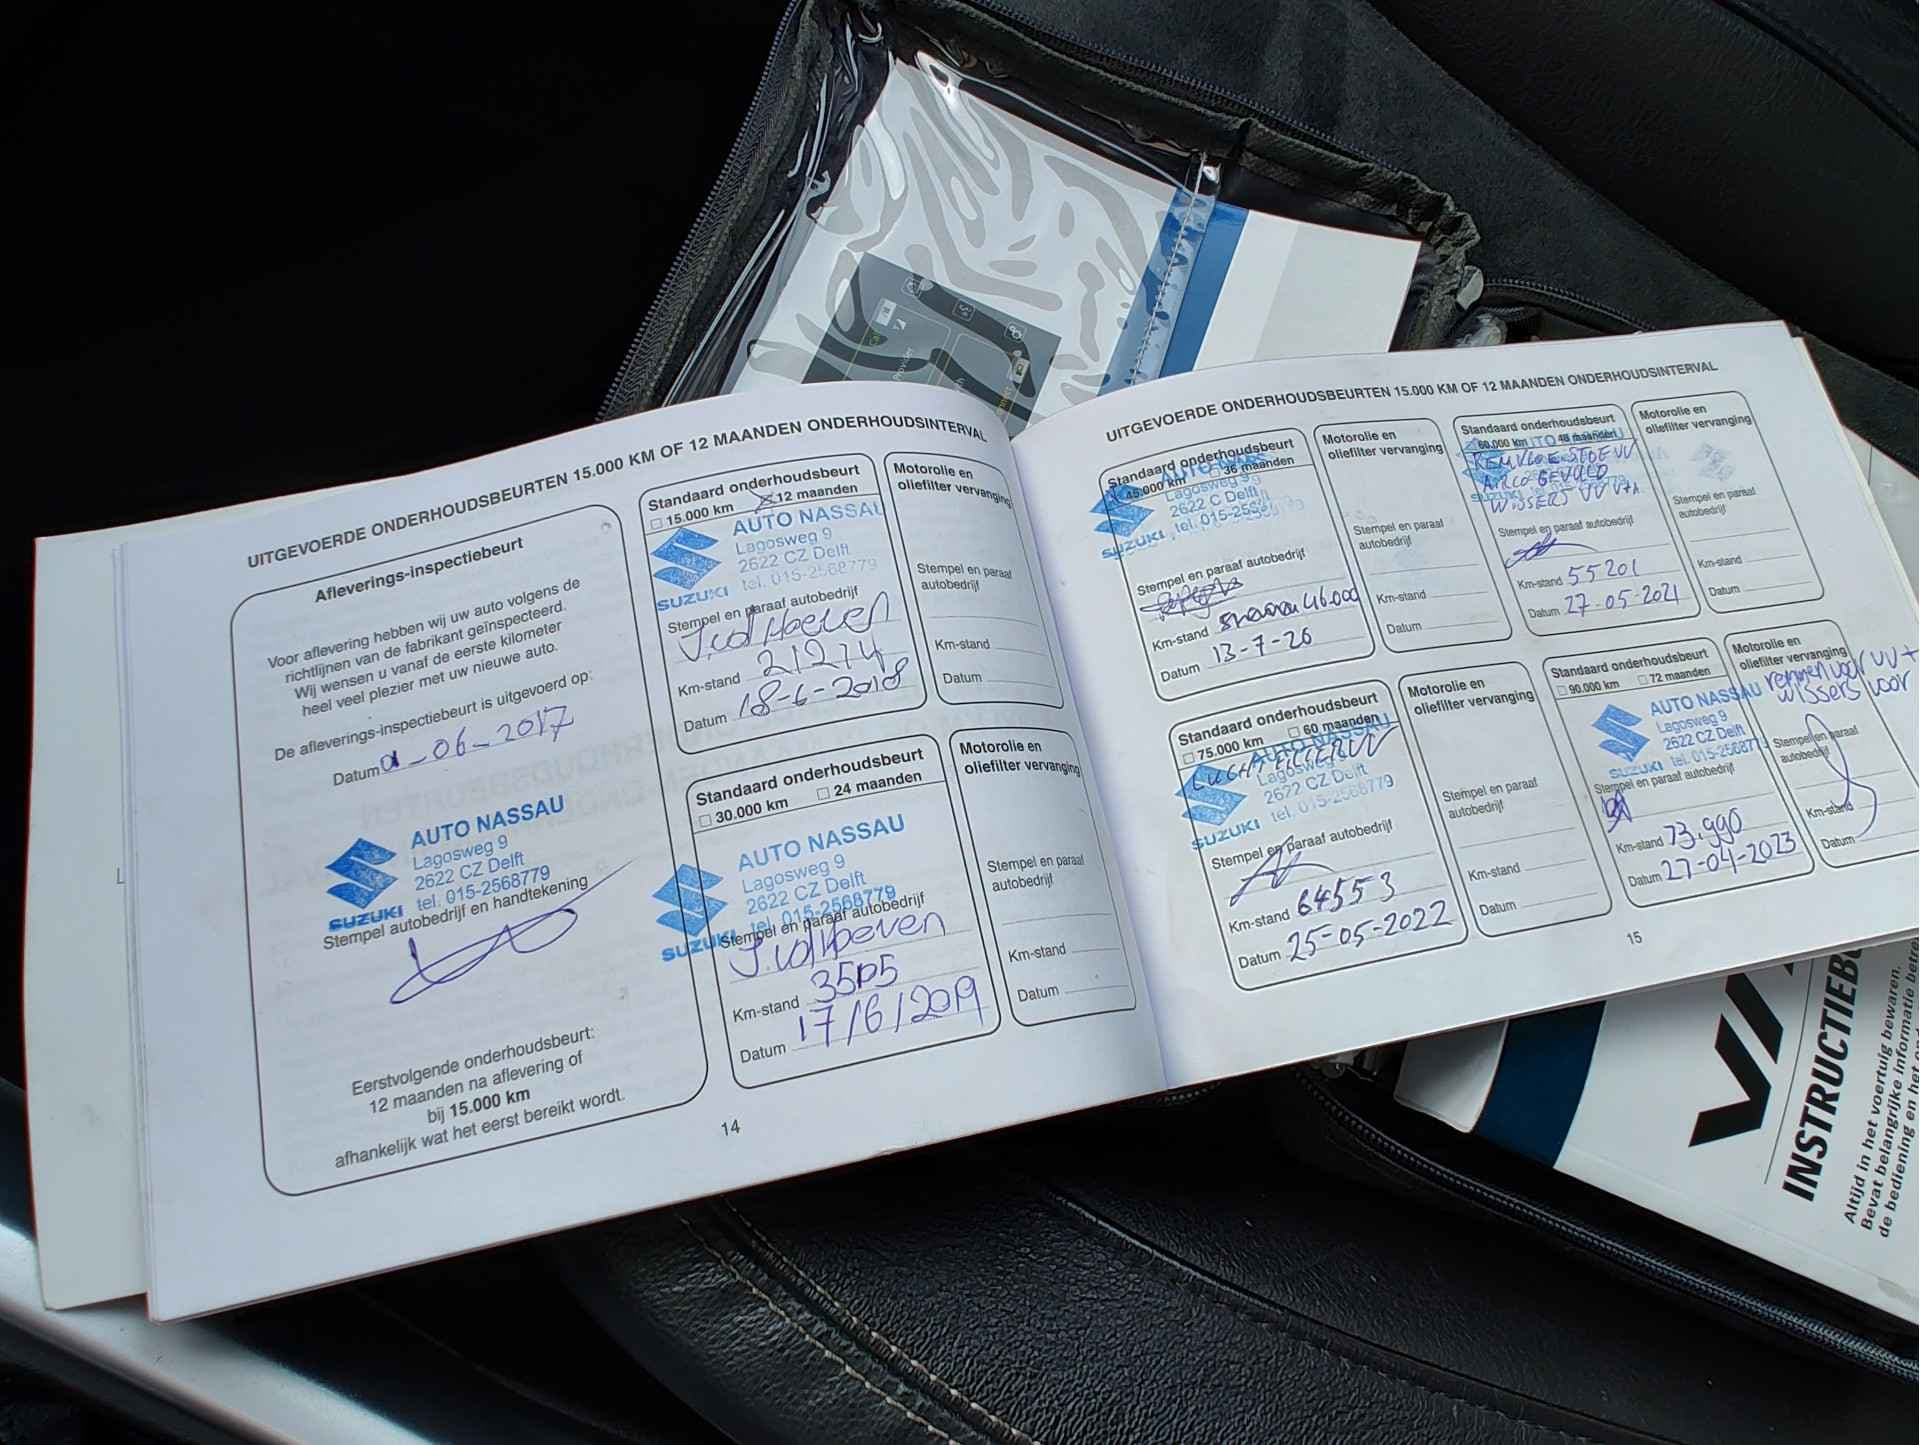 UITGEVOERDE ONDERHOUDSBEURTEN 15.000 KM OF 12 MAANDEN ONDERHOUDSINTERVAL
Afleverings-inspectiebeurt
Voor aflevering hebben wij uw auto volgens de
richtlijnen van de fabrikant geïnspecteerd.
Wij wensen u vanaf de eerste kilometer
heel veel plezier met uw nieuwe auto.
De afleverings-inspectiebeurt is uitgevoerd op:
Datum -06-2017
AUTO NASSAU
Lagosweg 9
2622 CZ Delft
tel. 015-2568779
SUZUKI
Stempel autobedrijf en handtekening
Eerstvolgende onderhoudsbeurt:
12 maanden na aflevering of
bij 15.000 km
afhankelijk wat het eerst bereikt wordt.
Standaard onderhoudsbeurt
15.000 km 12 maanden
AUTO NASSAU
Lagosweg 9
2622 CZ Delft
tel. 015-2568779
SUZUKI
Stempel en paraaf autobedrijf
J.vd Hoeven
Km-stand 21274
Datum 18-6-2018
Motorolie en
oliefilter vervanging
Stempel en paraaf
autobedrijf
Km-stand
Datum
Standaard onderhoudsbeurt
30.000 km 24 maanden
AUTO NASSAU
Lagosweg 9
2622 CZ Delft
tel. 015-2568779
SUZUKI
Stempel en paraaf autobedrijf
J.vd Hoeven
Km-stand
Datum 17/6/2019
Motorolie en
oliefilter vervanging
Stempel en paraaf
autobedrijf
Km-stand
Datum
14
UITGEVOERDE ONDERHOUDSBEURTEN 15.000 KM OF 12 MAANDEN ONDERHOUDSINTERVAL
Standaard onderhoudsbeurt
45.000 km 36 maanden
Lagosweg 9
2622 CZ Delft
tel. 015-256
SUZUKI
Stempel en paraaf autobedrijf
Km-stand 46.000
Datum 13-7-20
Motorolie en
oliefilter vervanging
Stempel en paraaf
autobedrijf
Km-stand
Datum
Standaard onderhoudsbeurt
60.000 km 48 maanden
AIRCO GEVULD
WISSERS VV
Stempel en paraaf autobedrijf
Km-stand 55201
Datum 27-05-2021
Motorolie en
oliefilter vervanging
Stempel en paraaf
autobedrijf
Km-stand
Datum
Standaard onderhoudsbeurt
75.000 km 60 maanden
AUTO NASSAU
Lagosweg 9
2622 CZ Delft
tel. 015-2568779
SUZUKI
Stempel en paraaf autobedrijf
Km-stand 64553
Datum 25-05-2022
Motorolie en
oliefilter vervanging
Stempel en paraaf
autobedrijf
Km-stand
Datum
Standaard onderhoudsbeurt
90.000 km 72 maanden
AUTO NASSAU
Lagosweg 9
2622 CZ Delft
tel. 015-2568779
SUZUKI
Stempel en paraaf autobedrijf
Km-stand 73.990
Datum 27-04-2023
Motorolie en
oliefilter vervanging
remmen voor VV +
wissers voor
Stempel en paraaf
autobedrijf
Km-stand
Datum
15
INSTRUCTIEB
Altijd in het voertuig bewaren.
Bevat belangrijke informatie
de bediening en het